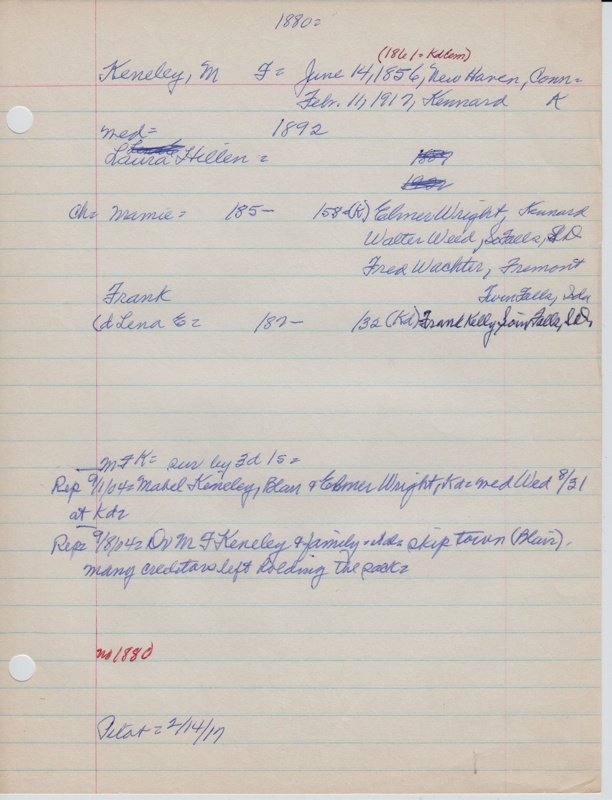 1880=
(1861= KdCem)
Keneley, M F= June 14, 1856, New Haven, Conn=
Feb. 11, 1917, Kennard K
med= 1892
Laura Hillen =
Ch= Mamie= 185- 158=(K) Elmer Wright, Kennard
Walter Weed, So Falls, S.D.
Fred Wachter, Fremont
Frank Twin Falls, Ida
(d Lena E= 187- /32 (Kd) Frank Kelly, Falls, S.D.
M F K= sur by 3d 1s=
Rep 9/1/04= Mabel Keneley, Blair & Elmer Wright, Kd= med Wed 8/31
at Kd=
Rep= 9/8/04= Dr M F Keneley & family skip town (Blair).
many creditors left holding the sack=
no 1880
Pilot= 2/14/17